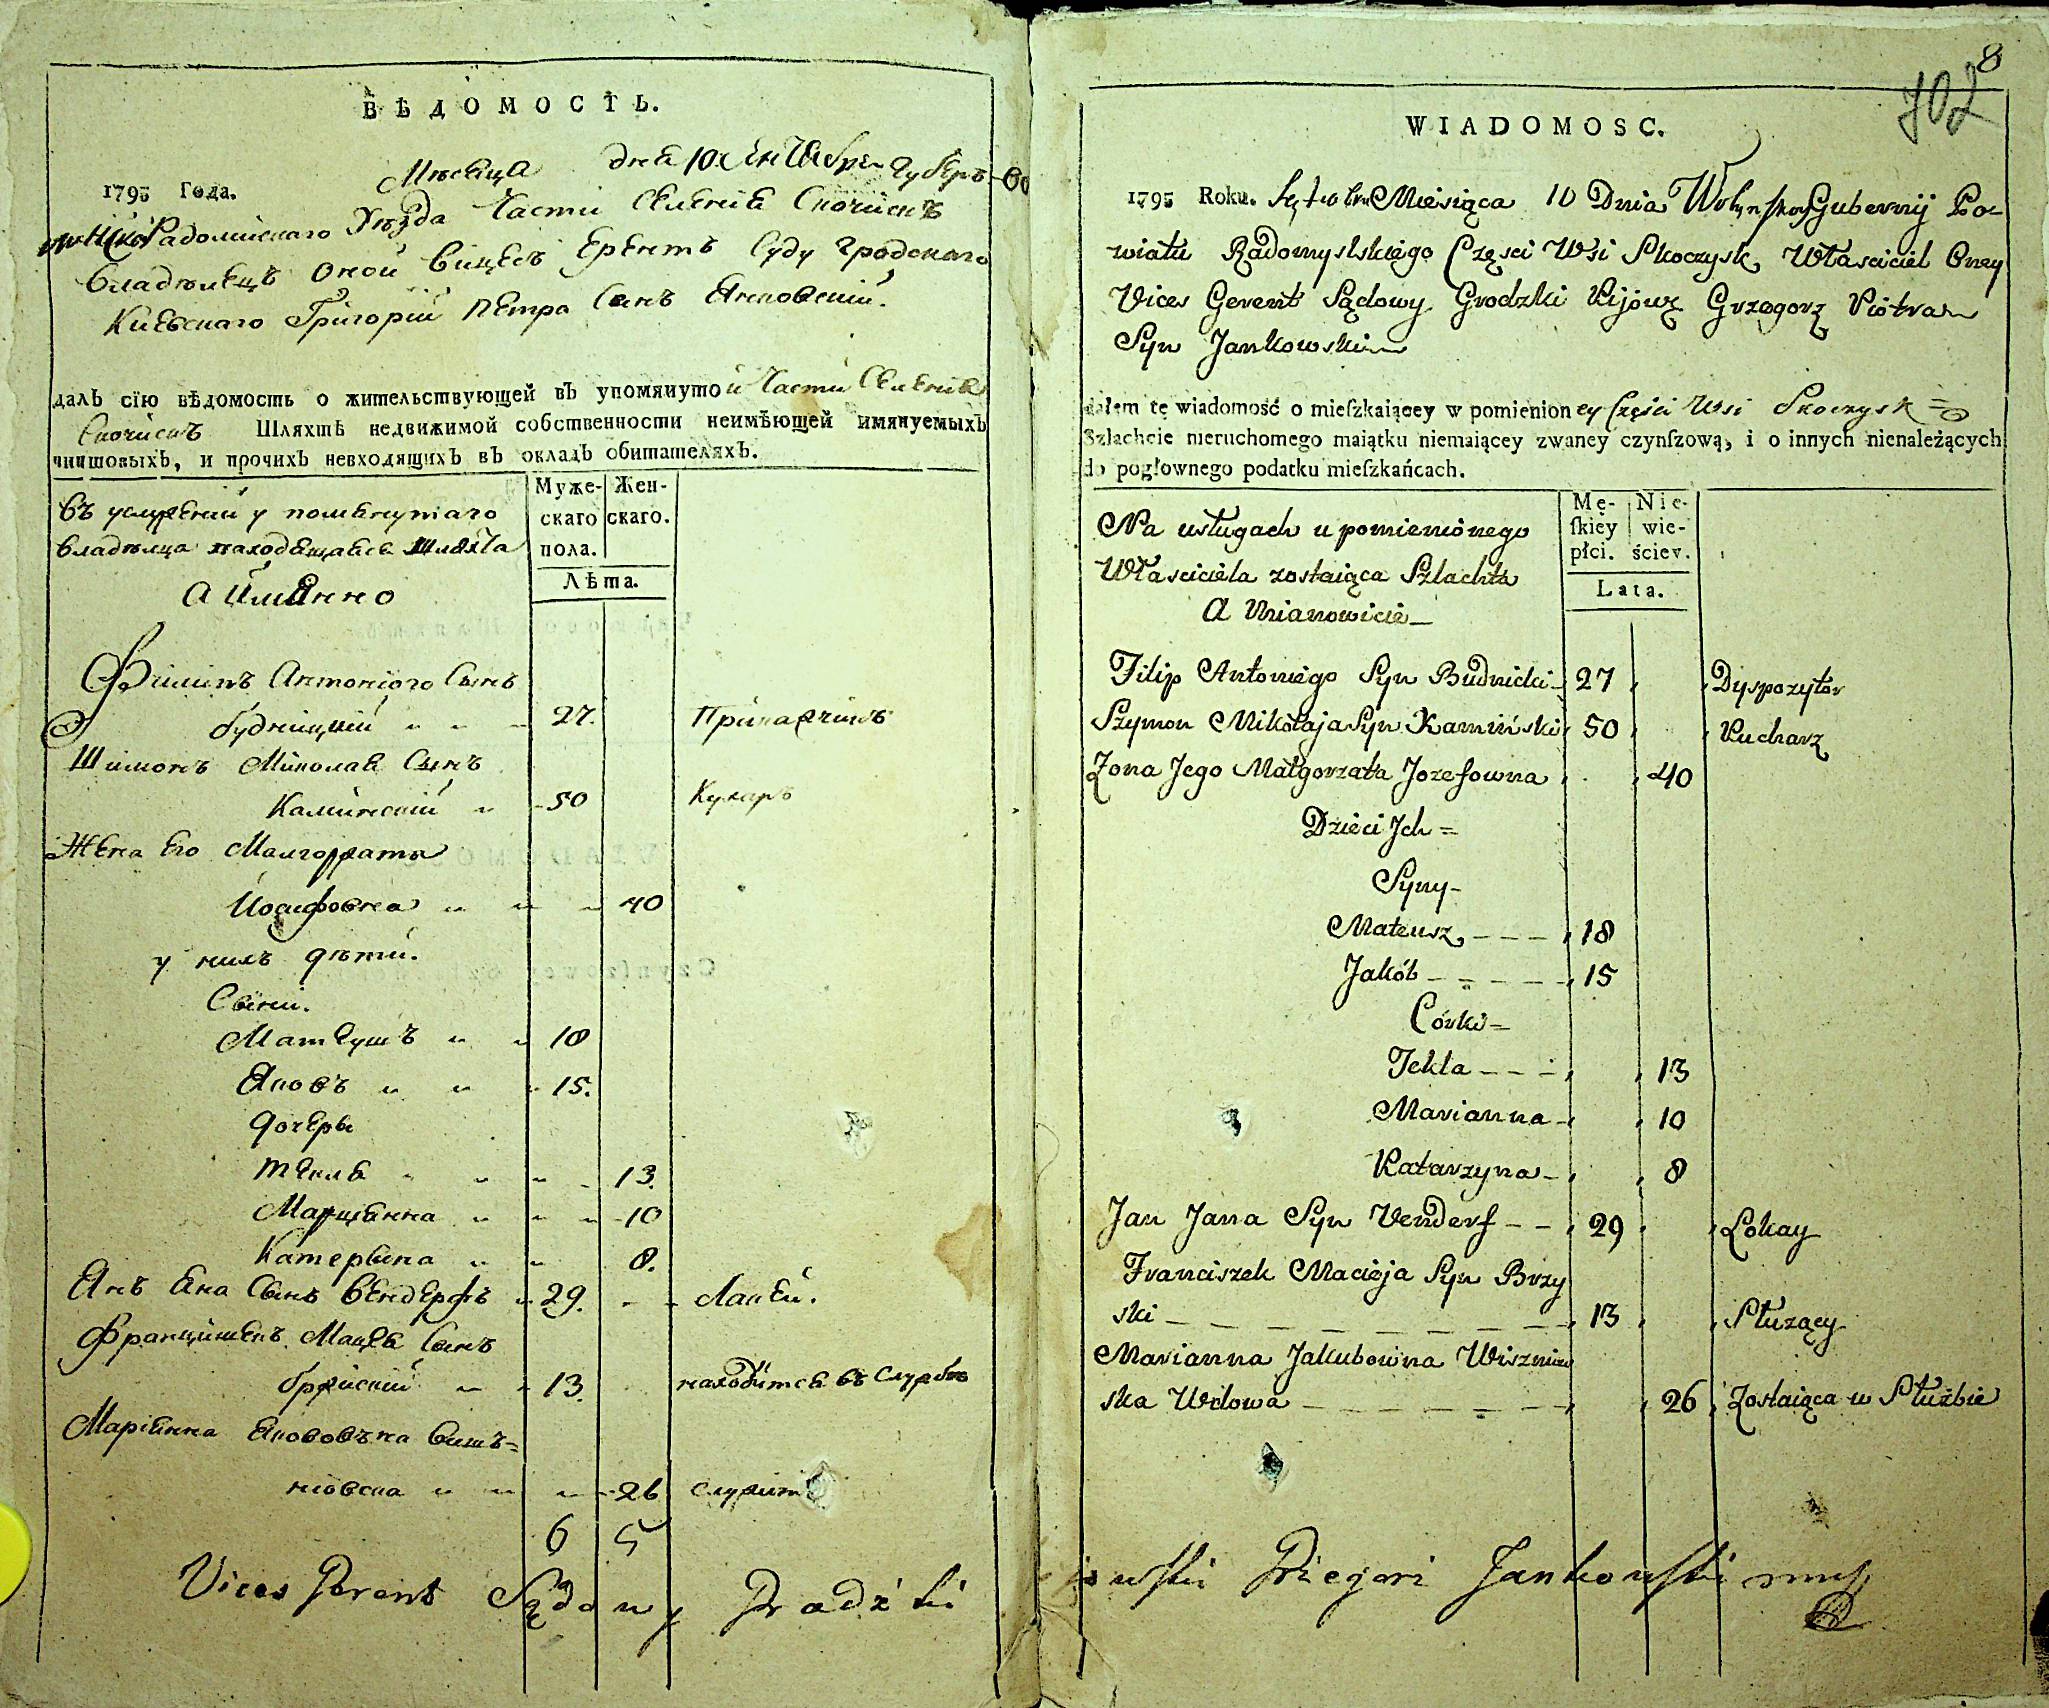 ВѢДОМОСТЬ.
1795 Года. Мѣсяца дня 10 Сентября Губер-
Радомисского Уѣзда Части Селения Скочискъ
Владѣлецъ оной Вицесъ Ерентъ Суду Градскаго
Киевскаго Григорій Петра Сынъ Янковскій.
далъ сїю вѣдомость о жительствующей въ упомянутой Части Селения
Скочискъ Шляхтѣ недвижимой собственности неимѣющей имянуемыхъ
чиншовыхъ, и прочихъ невходящихъ въ окладъ обитателяхъ.
Въ услужений у помянутаго
владѣлца находящаяся Шляхта
А Имянно
Муже- Жен-
скаго скаго.
пола.
Лѣта.
Филипъ Антонїого Сынъ
будницкий 27. Прикащикъ
Шимонъ Миколая Сынъ
Каминский 50 Кухаръ
Жена его Малгоржата
Йозифовна 40
у нихъ дѣти.
Сыни.
Матеушъ 18
Яковъ 15.
дочеры
Текля 13.
Марцянна 10
Катерына 8.
Янъ Яна Сынъ Вендерфъ 29. Лакей.
Францишекъ Мацея Сынъ
бржиский 13. находится въ службѣ
Марїянна Якововъна Вишъ=
нїовска 26 служитъ
6 5
Vices Gerent Sądowy Grodzki
8
702
WIADOMOSC.
1795 Roku. Septembra Miesiąca 10 Dnia Wołynskoy Gubernij Po-
wiatu Radomyslskiego Częsci Wsi Skoczysk, Własciciel Oney
Vices Gerent Sądowy Grodzki Kijowz Grzegorz Piotra
Syn Jankowski
dałem tę wiadomość o mieſzkaiącey w pomienioney Części Wsi Skoczysk
Szlachcie nieruchomego maiątku niemaiącey zwaney czynſzową, i o innych nienależących
do pogłownego podatku mieſzkańcach.
Na usługach u pomienionego
Własciciela zostaiąca Szlachta
A Mianowicie
Mę- Nie-
ſkiey wie-
płci. ściey.
Lata.
Filip Antoniego Syn Budnicki 27 Dyspozytor
Szymon Mikołaja Syn Kamiński 50 Kucharz
Zona Jego Małgorzata Jozefowna 40
Dzieci Jch =
Syny-
Mateusz 18
Jakób 15
Córki=
Tekla 13
Marianna 10
Katarzyna 8
Jan Jana Syn Venderf 29 Lokay
Franciszek Macieja Syn Brzy
ski 13 Służący
Marianna Jakubowna Wiszniow
ska Wdowa 26 Zostaiąca w Służbie
iowski Grzegorz Jankowski mp